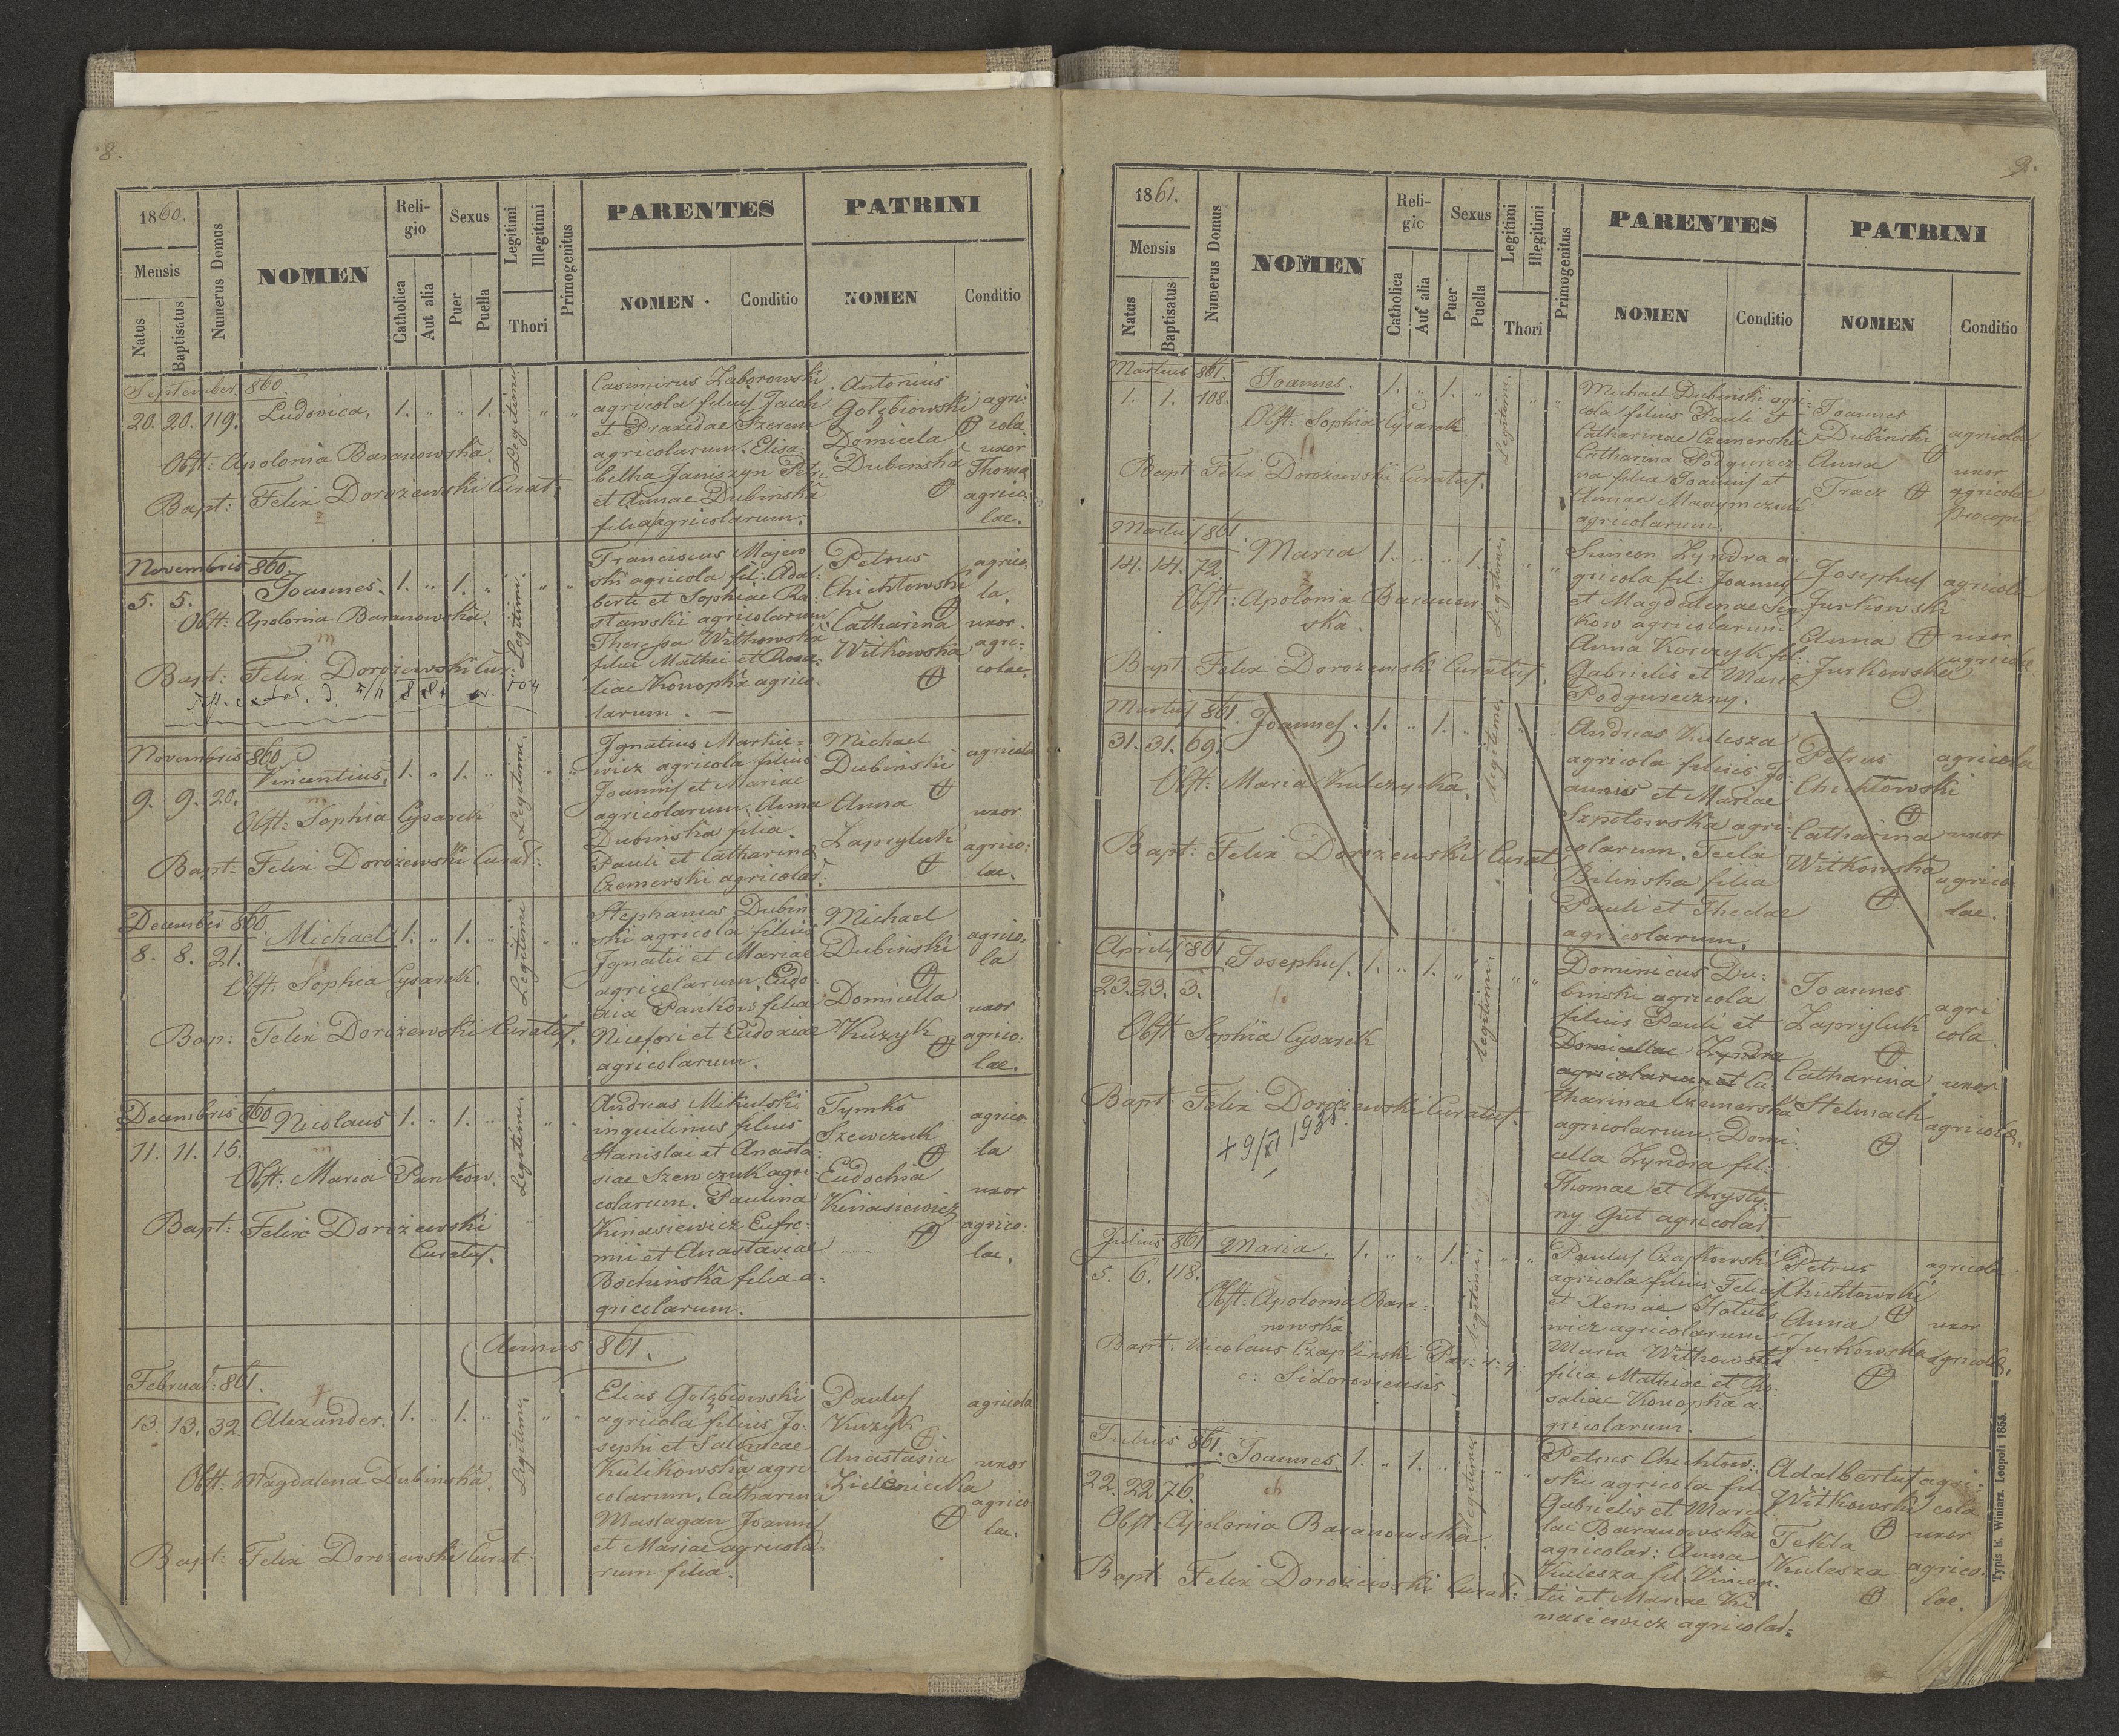 8.
1860.
Mensis
Natus
Baptisatus
Numerus Domus
NOMEN
Religio
Catholica
Aut alia
Sexus
Puer
Puella
Legitimi
Illegitimi
Thori
Primogenitus
PARENTES
NOMEN
Conditio
PATRINI
NOMEN
Conditio
September 860.
20. 20. 119. Ludovica, 1. „ „ 1. Legitimi. „ „
Obst: Apolonia Baranowska.
Bapt: Felix Dorożewski Curat:
Casimirus Zaborowski
agricola filius Jacobi
et Praxedae Szerem
agricolarum. Elisa-
betha Janiszyn Petri
et Annae Dubinska
filia agricolarum.
Antonius
Gołębiowski
Domicela
Dubinska
agri-
cola
uxor
Thoma
agrico-
lae.
Novembris 860.
5. 5. Joannes. 1. „ 1. „ Legitimi. „ „
Obst: Apolonia Baranowska.
Bapt: Felix Dorożewski Cur:
Franciscus Majew-
ski agricola fil: Adal-
berti et Sophiae Ra-
stawski agricolarum
Theresa Witkowska
filia Mathei et Rosa-
liae Konopka agrico-
larum. —
Petrus
Chichtowski
Catharina
Witkowska
agrico-
la.
uxor.
agri-
colae.
Novembris 860.
9. 9. 20. Vincentius, 1. „ 1. „ Legitimi. „ „
Obst: Sophia Cysarek
Bapt: Felix Dorożewski Curat:
Ignatius Markie-
wicz agricola filius
Joannis et Mariae
agricolarum. Anna
Dubinska filia
Pauli et Catharina
Czemerski agricolar:
Michael
Dubinski
Anna
Zapryluk
agricola
uxor
agrico:
lae.
December 860.
8. 8. 21. Michael 1. „ 1. „ Legitimi „ „
Obst. Sophia Cysarek.
Bap: Felix Dorożewski Curatus.
Stephanus Dubin
ski agricola filius
Ignatii et Mariae
agricolarum. Eudo-
xia Pankow filia
Nicefori et Eudoxiae
agricolarum.
Michael
Dubinski
Domicella
Kuzyk
agrico:
la
uxor
agrico:
lae.
Decembris 860
11. 11. 15. Nicolaus 1. „ 1. „ Legitimi. „ „
Obst: Maria Pankow.
Bapt: Felix Dorożewski
Curatus.
Andreas Mikulski
inquilinus filius
Stanislai et Anasta-
siae Szewczuk agri-
colarum. Paulina
Kinasiewicz Eufre-
mii et Anastasiae
Bochinska filia a-
gricolarum.
Tymko
Szewczuk
Eudochia
Kinasiewicz
agrico
la
uxor
agrico:
lae.
Annus 861.
Februar: 861.
13. 13. 32. Alexander. 1. „ 1. „ Legitimi. „ „
Obst: Magdalena Dubinska.
Bapt: Felix Dorożewski Curat:
Elias Gołębiowski
agricola filius Jo-
sephi et Salomeae
Kulikowska agri
colarum. Catharina
Maslagan Joannis
et Mariae agricola-
rum filia.
Paulus
Kuzyk
Anastasia
Zieleniecka
agricola
uxor
agrico
lae.
9.
1861.
Mensis
Natus
Baptisatus
Numerus Domus
NOMEN
Religio
Catholica
Aut alia
Sexus
Puer
Puella
Legitimi
Illegitimi
Thori
Primogenitus
PARENTES
NOMEN
Conditio
PATRINI
NOMEN
Conditio
Martius 861.
1. 1. 108. Joannes. 1. „ 1. „ Legitimi. „ „
Obst: Sophia Cysarek
Bapt: Felix Dorożewski Curatus.
Michael Dubinski agri-
cola filius Pauli et
Catharinae Czemerska
Catharina Podgurecz-
na filia Joannis et
Annae
agricolarum.
Joannes
Dubinski
Anna
Tracz
agricola
uxor
agricolae
Procopii
Martius 861
14. 14. 72. Maria 1. „ „ 1. Legitimi. „ „
Obst: Apolonia Baranow-
ska.
Bapt: Felix Dorożewski Curatus.
Simeon Zyndra a-
gricola fil: Joannis
et Magdalenae
kow agricolarum
Anna Korczyk fil:
Gabrielis et Mariae
Podgureczny.
Josephus
Jurkowski
Anna
Jurkowska
agricola
uxor
agricolae
Martius 861.
31. 31. 69. Joannes. 1. „ 1. „ legitimi. „ „
Obst: Maria Kulczycka.
Bapt: Felix Dorożewski Curat:
Andreas Kulesza
agricola filius Jo-
annis et Mariae
Szpotowska agri-
colarum. Tecla
Bilinska filia
Pauli et Theclae
agricolarum.
Petrus
Chichtowski
Catharina
Witkowska
agricola
uxor
agrico
lae.
Aprilis 861
23. 23. 3. Josephus. 1. „ 1. „ legitimi. „ „
Obst Sophia Cysarek
Bapt: Felix Dorożewski Curatus.
+ 9/XI 1938.
Dominicus Du-
binski agricola
filius Pauli et
Domicellae Zyndra
agricolarum et Ca-
tharinae Czemerska
agricolarum. Domi-
cella Zyndra fil:
Thomae et Chrysty-
ny Gut agricolar:
Joannes
Zapryluk
Catharina
Stelmach
agri
cola.
uxor
agricolae.
Julius 861
5. 6. 118. Maria. 1. „ „ 1. legitimi. „ „
Obst: Apolonia Bara-
nowska
Bapt: Nicolaus Czaplinski Par: r: g:
c: Sidoroviensis
Paulus Czajkowski
agricola filius Felicis
et Xeniae Holubo
wicz agricolarum
Maria Witkowska
filia Mathiae et Ro-
saliae Konopka a-
gricolarum.
Petrus
Chichtowski
Anna
Jurkowska
agricola
uxor
agricolae.
Julius 861.
22. 22. 76. Joannes. 1. „ 1. „ Legitimi „ „
Obst: Apolonia Baranowska.
Bapt: Felix Dorożewski Curat:
Petrus Chichtow-
ski agricola fil
Gabrielis et Maria
lae Baranowska
agricolar: Anna
Kulesza fil: Vincen-
tii et Mariae Ki
nasiewicz agricolar:
Adalbertus
Witkowski
Tekla
Kulesza
agri-
cola
uxor
agrico-
lae.
Typis E. Winiarz. Leopoli 1855.